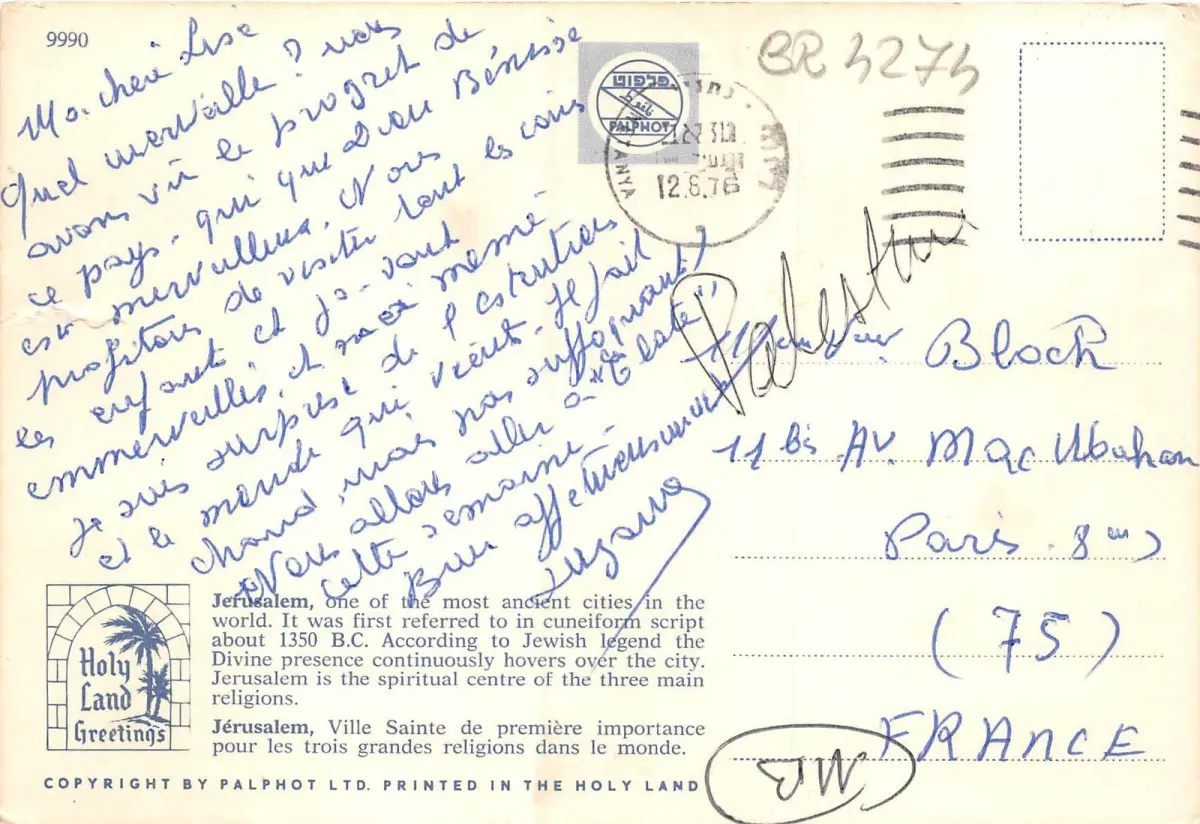 9990
Ma chère Lise
Quel merveille ? nous
avons vu le progret de
ce pays - qui que Dieu Bénisse
est merveilleux. Nous
profitons de visiter tout les coins
les enfants et Jo - vont
emmerveillés, et moi même
Je suis surprise de l'
et le monde qui vient - Il fait
chaud, mais pas suffoquant)
Nous allons aller a
cette semaine -
Bien affectueusement
Suzanne
פלפוט
PALPHOT
ANYA
12.8.76
BR 4274
Palestine
Monsieur Bloch
11 bis Av. Mac Mahon
Paris 8
(75)
FRANCE
MB
Holy
Land
Greetings
Jerusalem, one of the most ancient cities in the
world. It was first referred to in cuneiform script
about 1350 B.C. According to Jewish legend the
Divine presence continuously hovers over the city.
Jerusalem is the spiritual centre of the three main
religions.
Jérusalem, Ville Sainte de première importance
pour les trois grandes religions dans le monde.
COPYRIGHT BY PALPHOT LTD. PRINTED IN THE HOLY LAND